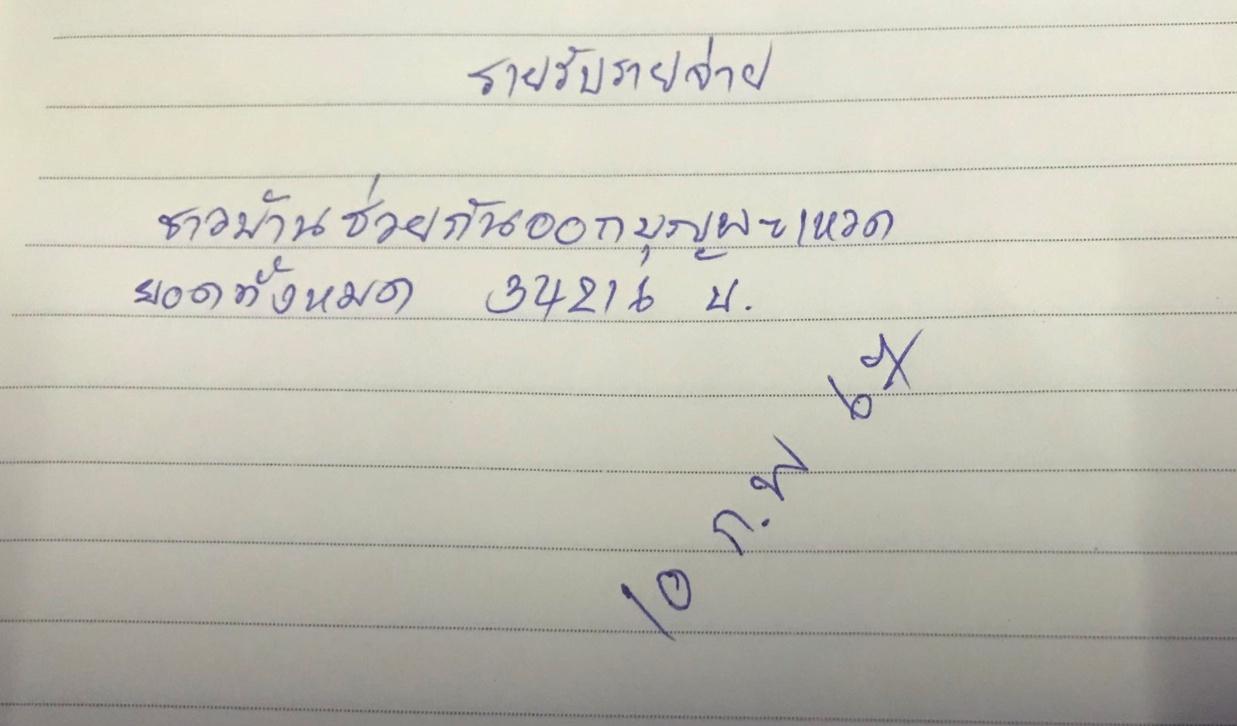 รายรับรายจ่าย
ชาวบ้านช่วยกันออกบุญผะเหวด
ยอดทั้งหมด 34216 บ.
10 ก.พ